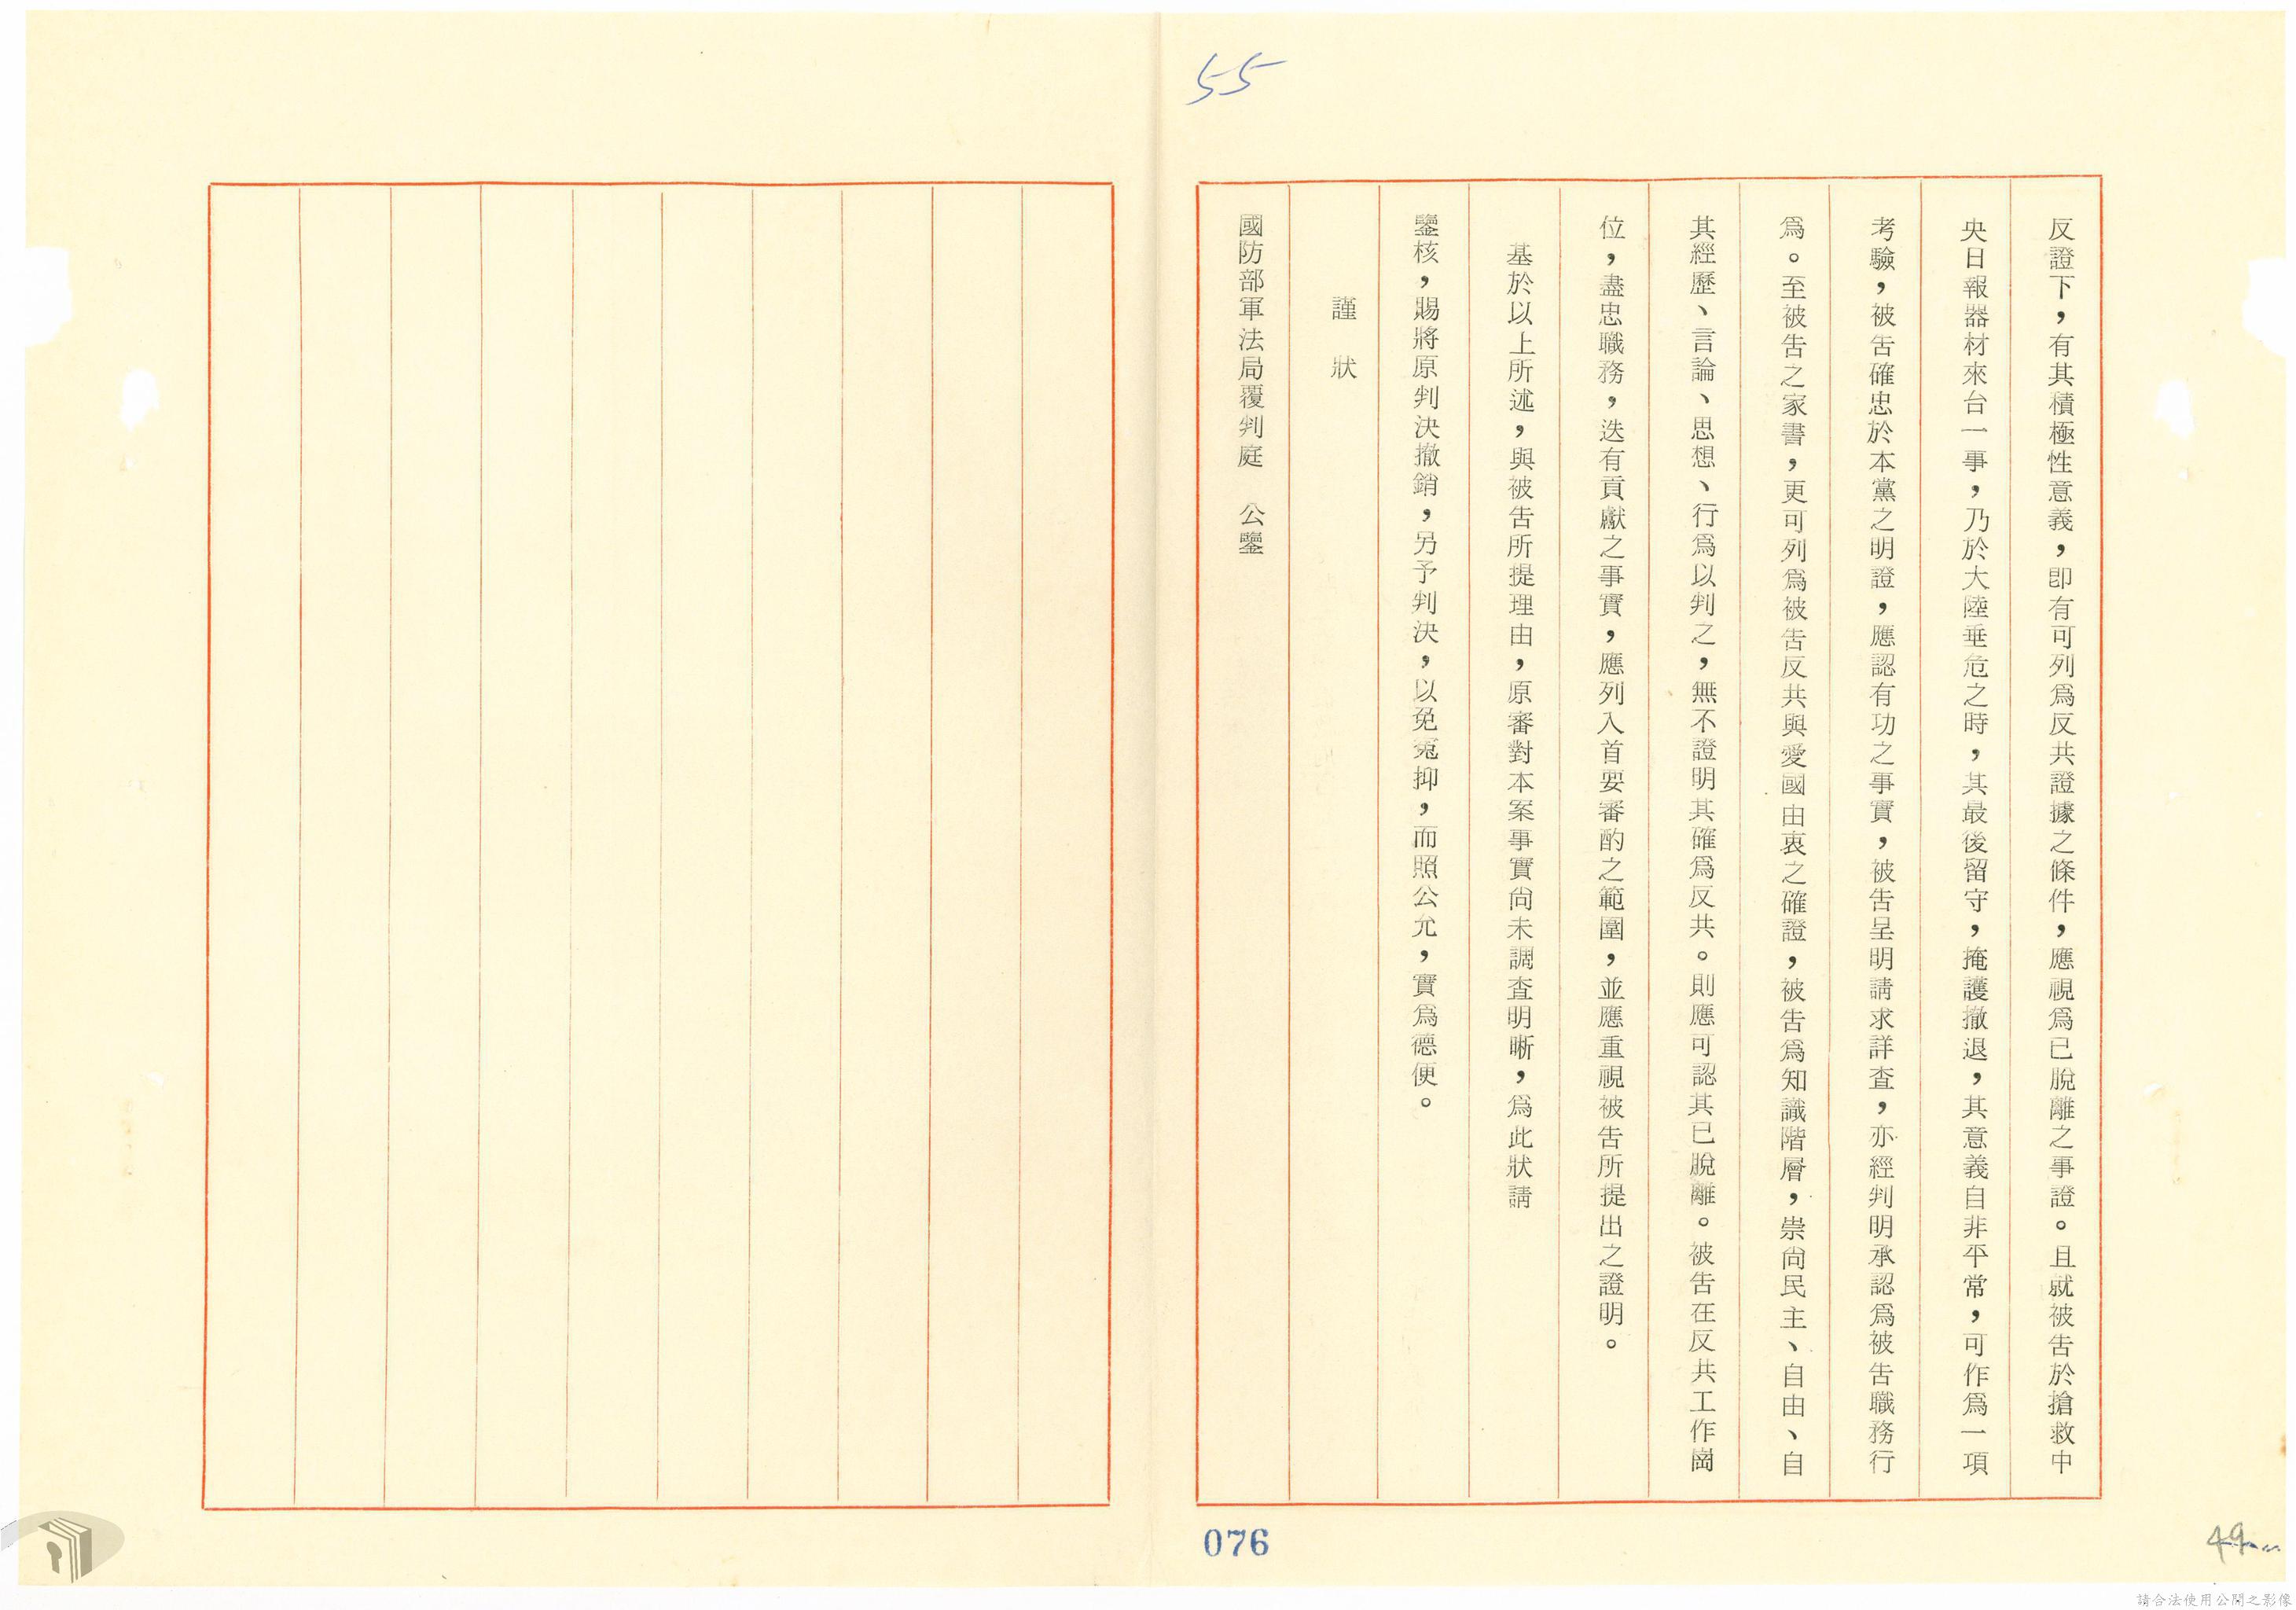 55
反證下，有其積極性意義，卽有可列爲反共證據之條件，應視爲已脫離之事證。且就被告於搶救中
央日報器材來台一事，乃於大陸垂危之時，其最後留守，掩護撤退，其意義自非平常，可作爲一項
考驗，被告確忠於本黨之明證，應認有功之事實，被告呈明請求詳查，亦經判明承認爲被告職務行
爲。至被告之家書，更可列爲被告反共與愛國由衷之確證，被告爲知識階層，崇尚民主、自由、自
其經歷、言論、思想、行爲以判之，無不證明其確爲反共。則應可認其已脫離。被告在反共工作崗
位，盡忠職務，迭有貢獻之事實，應列入首要審酌之範圍，並應重視被告所提出之證明。
基於以上所述，與被告所提理由，原審對本案事實尚未調查明晰，爲此狀請
鑒核，賜將原判決撤銷，另予判決，以免冤抑，而照公允，實爲德便。
謹 狀
國防部軍法局覆判庭 公鑒
076
49
請合法使用公開之影像